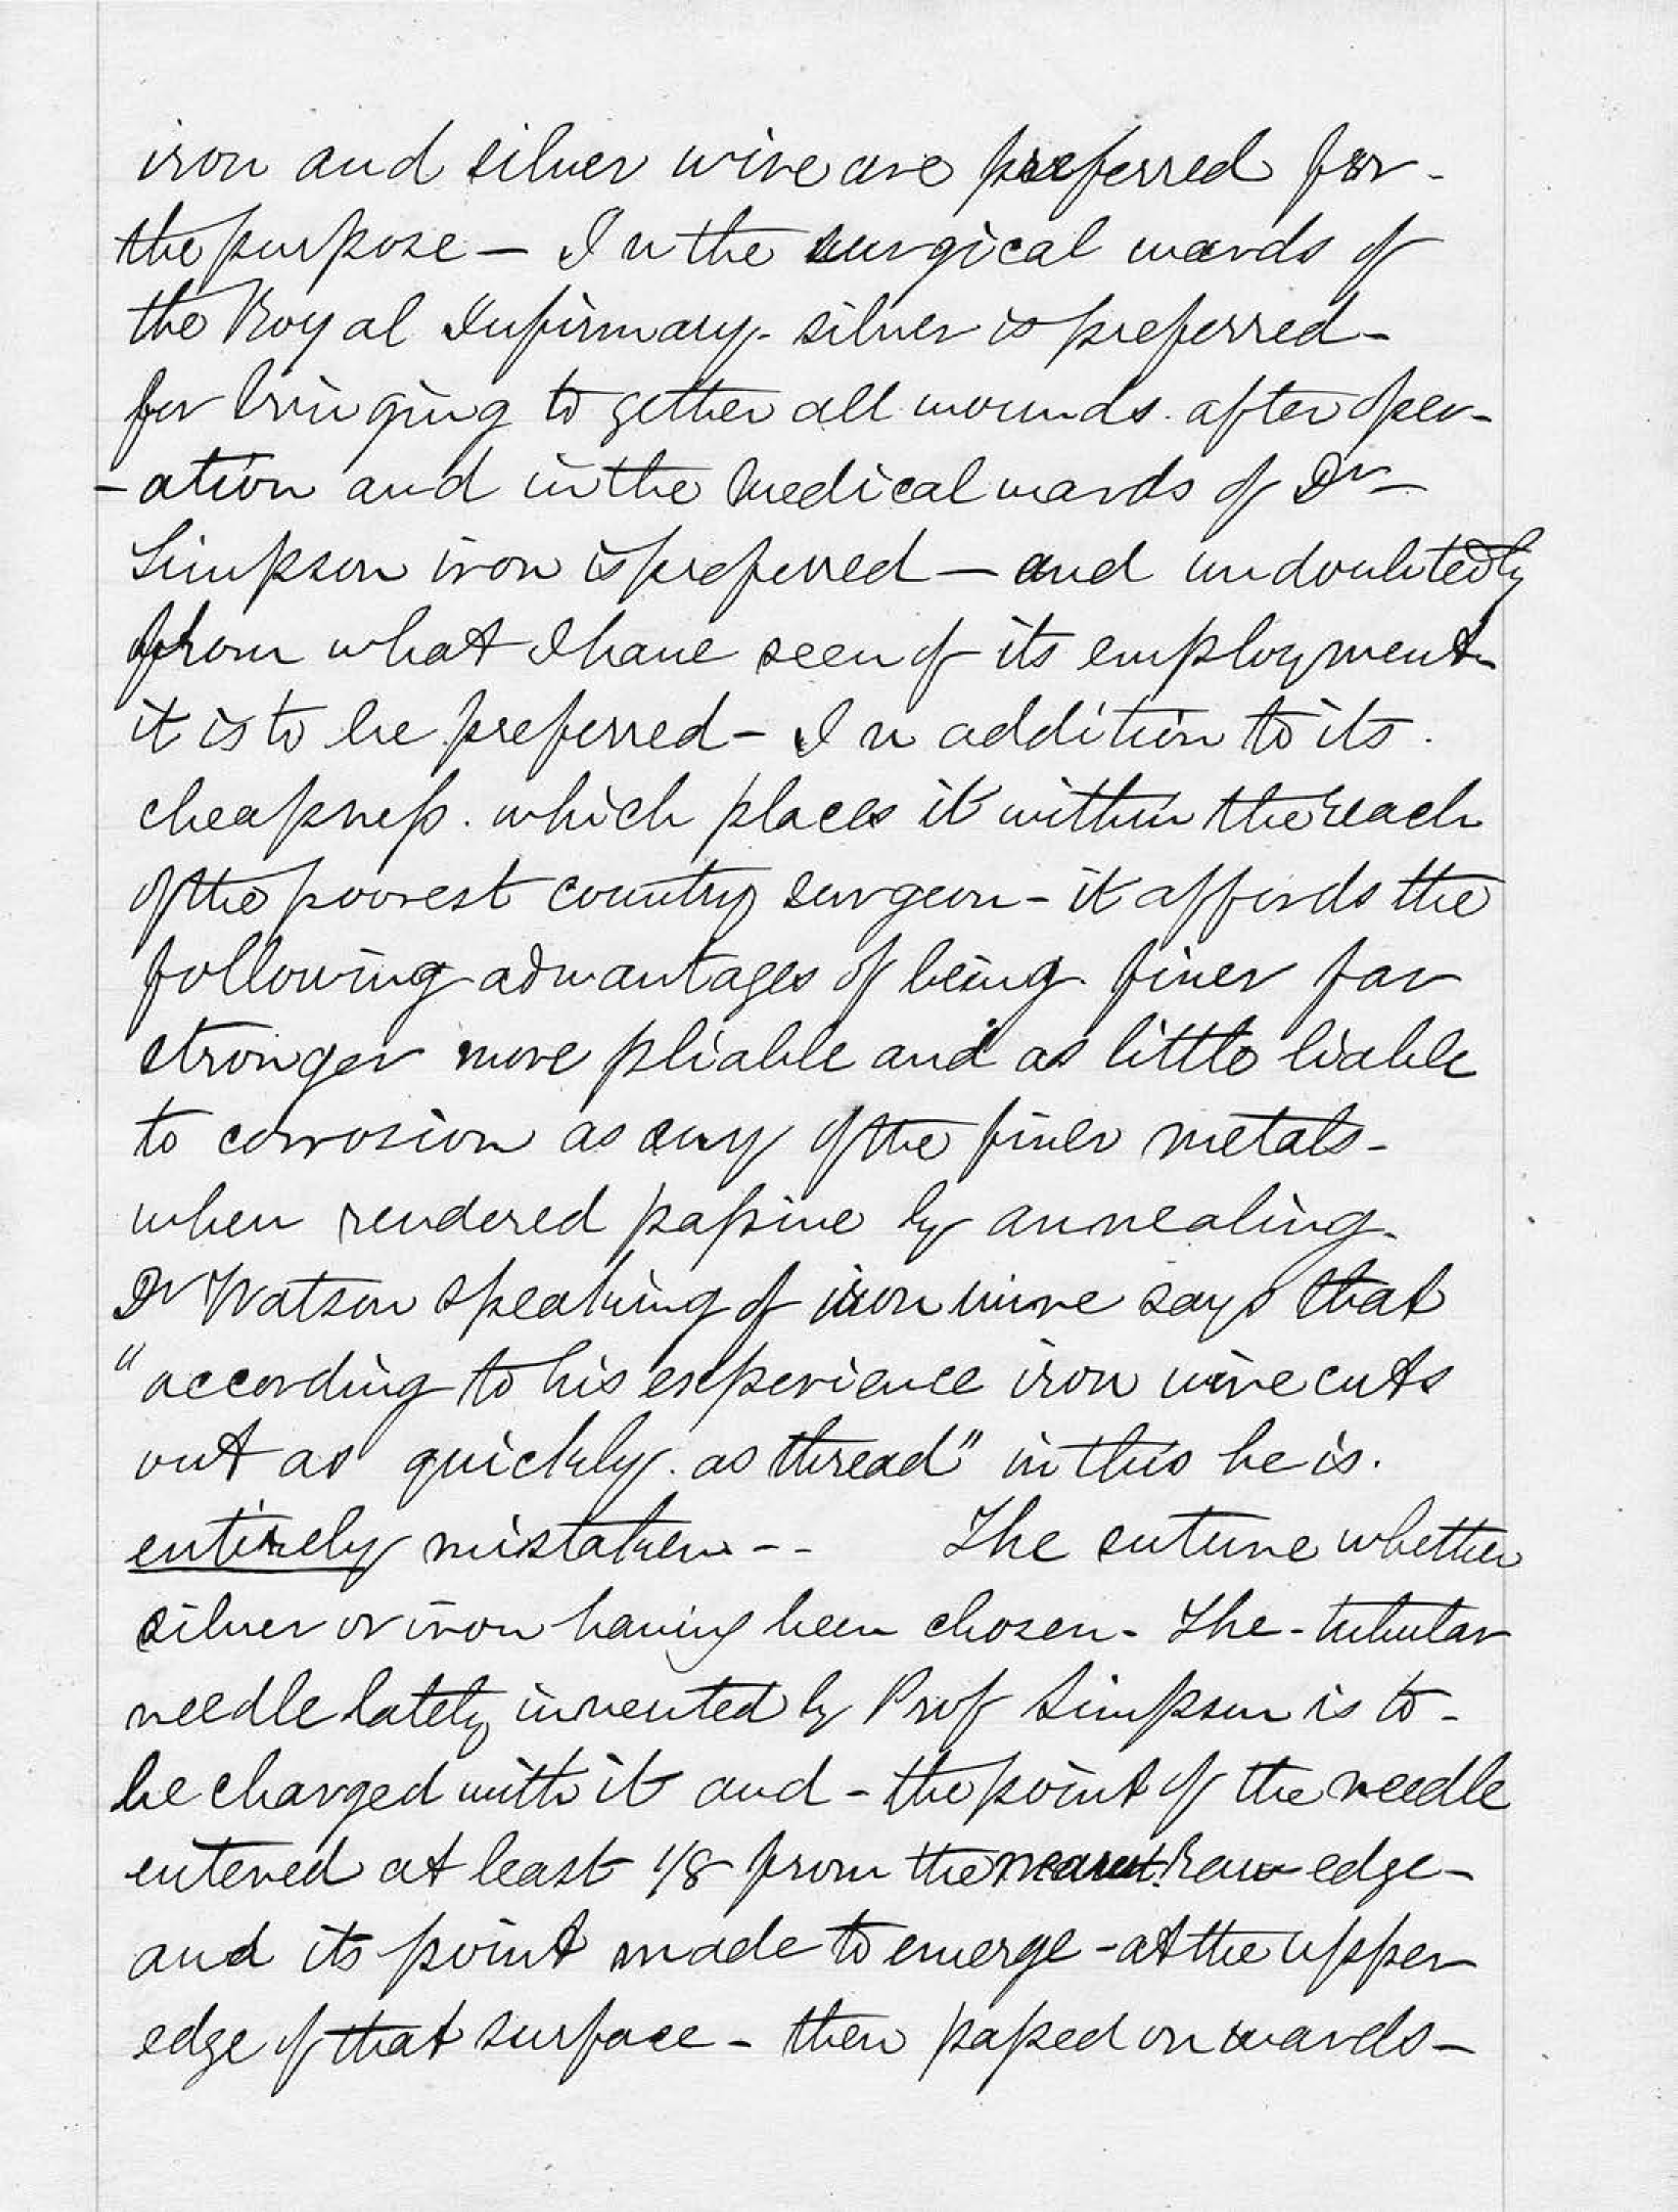 iron and silver wire are preferred for -
the purpose — In the surgical wards of
the Royal Infirmary - silver is preferred -
for bringing to gether all wounds. after oper-
-ation and in the Medical wards of Dr
Simpson iron is preferred — and undoubtedly
from what I have seen of its employment -
it is to be preferred - In addition to its .
cheapness . which places it within the reach
of the poorest country surgeon - it affords the
following advantages of being finer far
stronger more pliable and as little liable
to corrosion as any of the finer metals -
when rendered passive by annealing -
Dr Watson speaking of iron wire says that
"according to his experience iron wire cuts
out as quickly . as thread" in this he is .
entirely mistaken - - The suture whether
silver or iron having been chosen - The - tubular
needle lately invented by Prof Simpson is to -
be charged with it and - the point of the needle
entered at least 1/8 from the raw edge -
and its point made to emerge - at the upper
edge of that surface - then passed on wards -